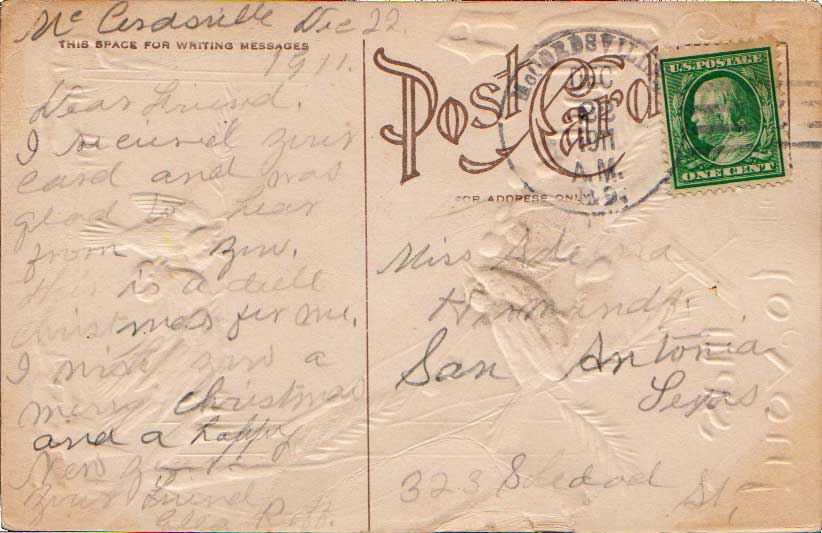 Mc Cordsville Dec 22.
THIS SPACE FOR WRITING MESSAGES
1911.
Dear Friend.
I received your
card and was
glad to hear
from you.
this is a dull
christmas for me.
I wish you a
merry christmas
and a happy
New year
your friend
Ruff.
Post Card
FOR ADDRESS ONLY
McCORDSVILLE
DEC
22
1911
A.M.
U.S. POSTAGE
ONE CENT
Miss
San Antonia
Texas.
323 Soledad
St,